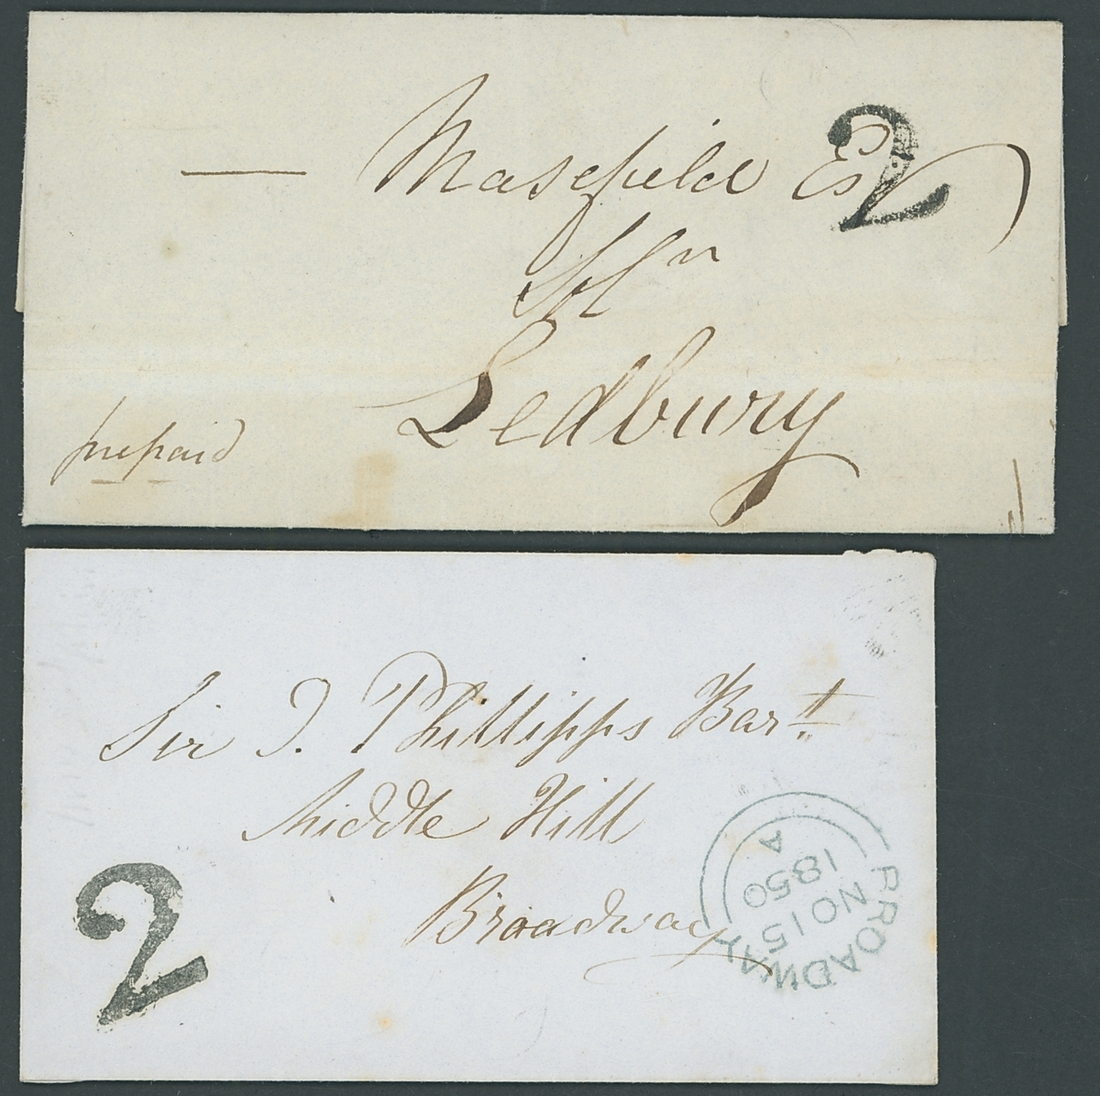 2
Masefield Esqr
Solr
Ledbury
prepaid
Sir T. Phillipps Bart
Middle Hill
Broadway
2
BROADWAY
NO 15
1850
A